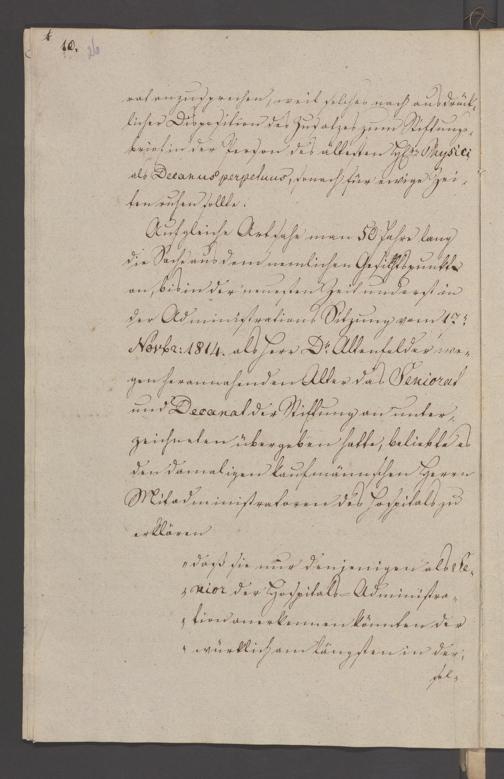 10. 26
rat anzusprechen, weil solches nach ausdrück-
licher Disposition des Zusatzes zum Stiftungs-
brief in der Person des ältesten Physici
als Decanus perpetuus, sonach für ewige Zei-
ten ruhen sollte.
Auf gleiche Art sahe man 50 Jahre lang
die Sache aus dem nemlichen Gesichtspunkte
an, bis in der neuesten Zeit und erst in
der Administrations Sitzung vom 1ten
Novbr: 1814. als Herr Dr. Altenfelder we-
gen herannahenden Alter das Seniorat
und Decanat der Stiftung an unter-
zeichneten übergeben hatte, beliebte es
den damaligen kaufmännischen Herrn
Mitadministratoren des Hospitals zu
erklären
"daß sie nur denjenigen als Se-
"nior der Hospitals-Administra-
"tion anerkennen könnten der
"würklich am längsten in der-
sel-